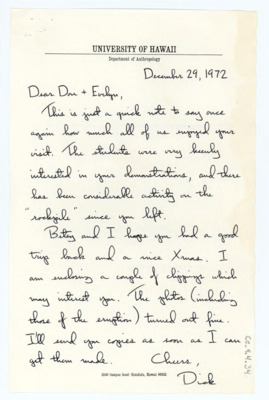 UNIVERSITY OF HAWAII
Department of Anthropology
December 29, 1972
Dear Don + Evelyn,
This is just a quick note to say once
again how much all of us enjoyed your
visit. The students were very keenly
interested in your demonstrations, and there
has been considerable activity on the
"rockpile" since you left.
Betsy and I hope you had a good
trip back and a nice Xmas. I
am enclosing a couple of clippings which
may interest you. The photos (including
those of the eruption) turned out fine.
I'll send you copies as soon as I can
get them made. Cheers,
Dick
Honolulu, Hawaii